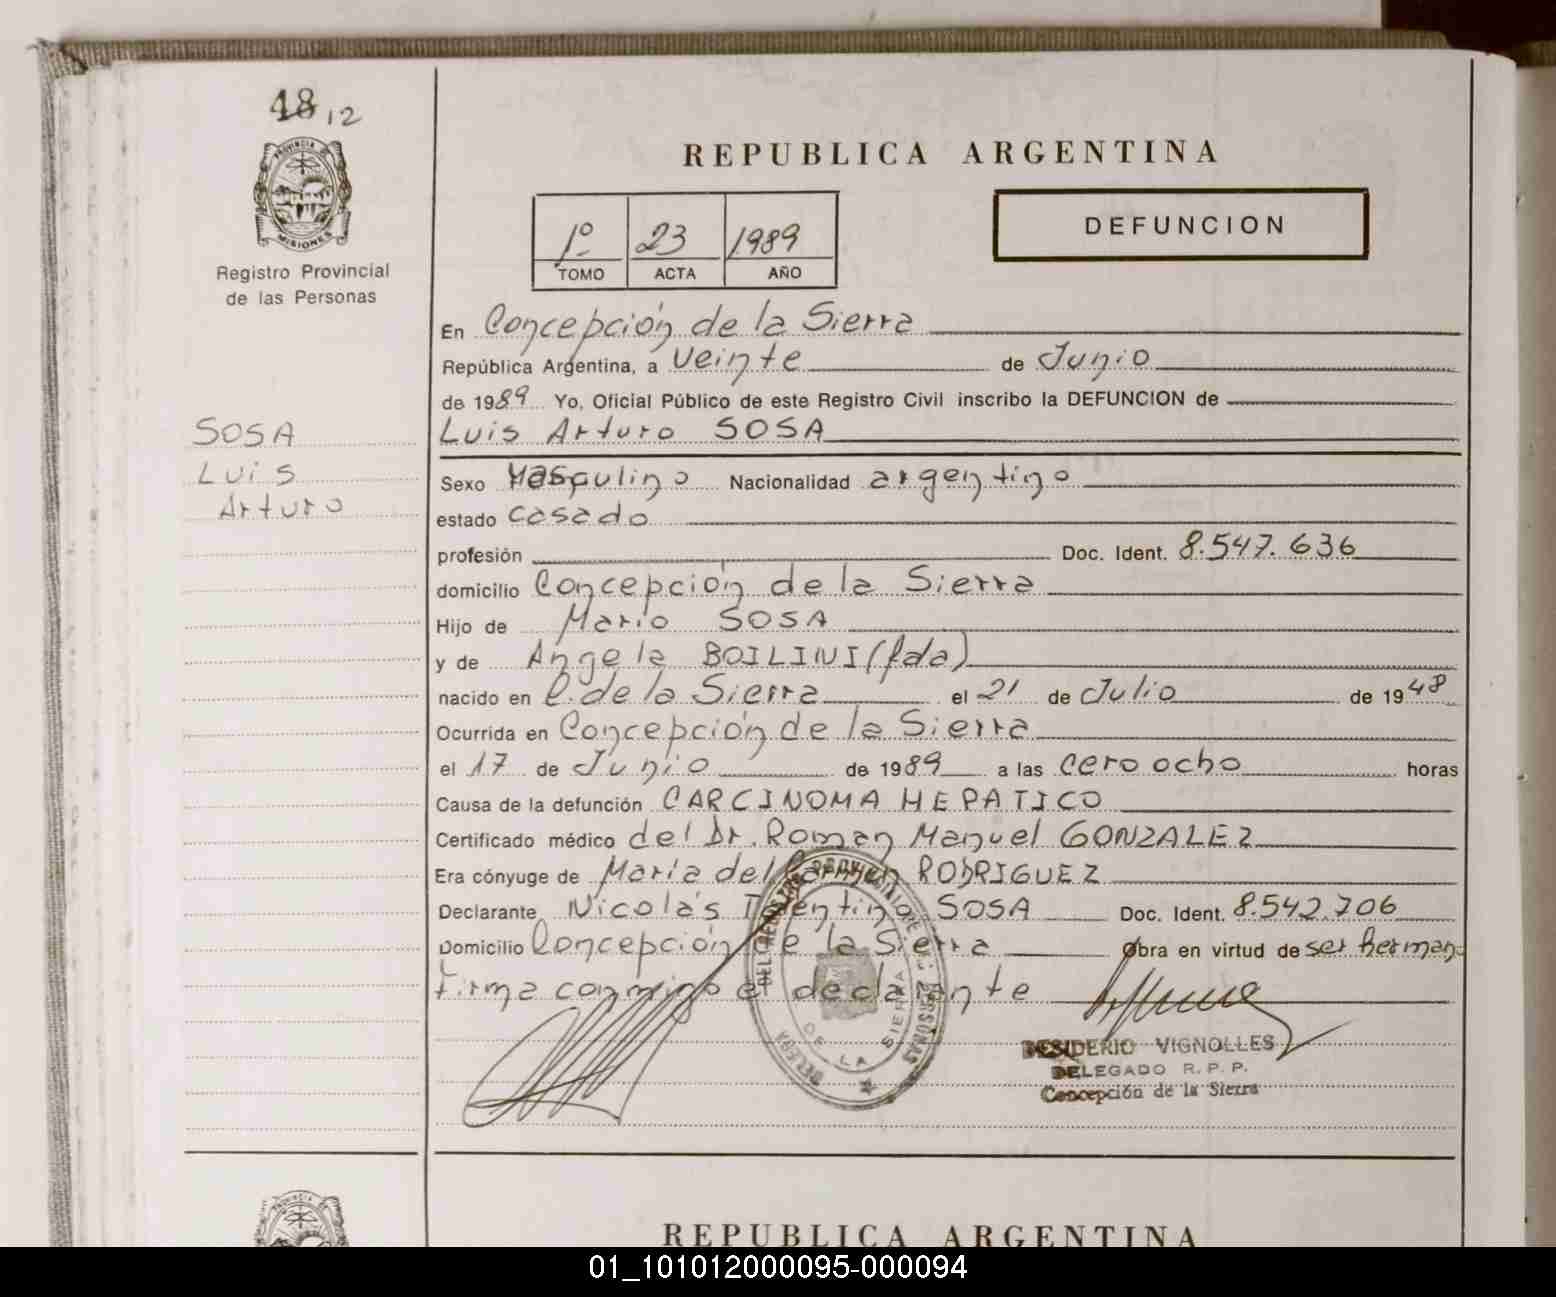 48 12
PROVINCIA
MISIONES
Registro Provincial
de las Personas
SOSA
Luis
Arturo
REPUBLICA ARGENTINA
1º 23 1989
TOMO ACTA AÑO
DEFUNCION
En Concepción de la Sierra
República Argentina, a veinte de Junio
de 1989 Yo, Oficial Público de este Registro Civil inscribo la DEFUNCION de
Luis Arturo SOSA
Sexo Masculino Nacionalidad argentino
estado casado
profesión Doc. Ident. 8.547.636
domicilio Concepción de la Sierra
Hijo de Mario SOSA
y de Angela BOILINI (fda)
nacido en C. de la Sierra el 21 de Julio de 1948
Ocurrida en Concepción de la Sierra
el 17 de Junio de 1989 a las cero ocho horas
Causa de la defunción CARCINOMA HEPATICO
Certificado médico del Dr. Roman Manuel GONZALEZ
Era cónyuge de María del Carmen RODRIGUEZ
Declarante Nicolás SOSA Doc. Ident. 8.542.706
Domicilio Concepción de la Sierra Obra en virtud de ser hermano
firma conmigo el declarante
DE LA SIERRA
DESIDERIO VIGNOLLES
DELEGADO R. P. P.
Concepción de la Sierra
PROVINCIA
REPUBLICA ARGENTINA
01_101012000095-000094